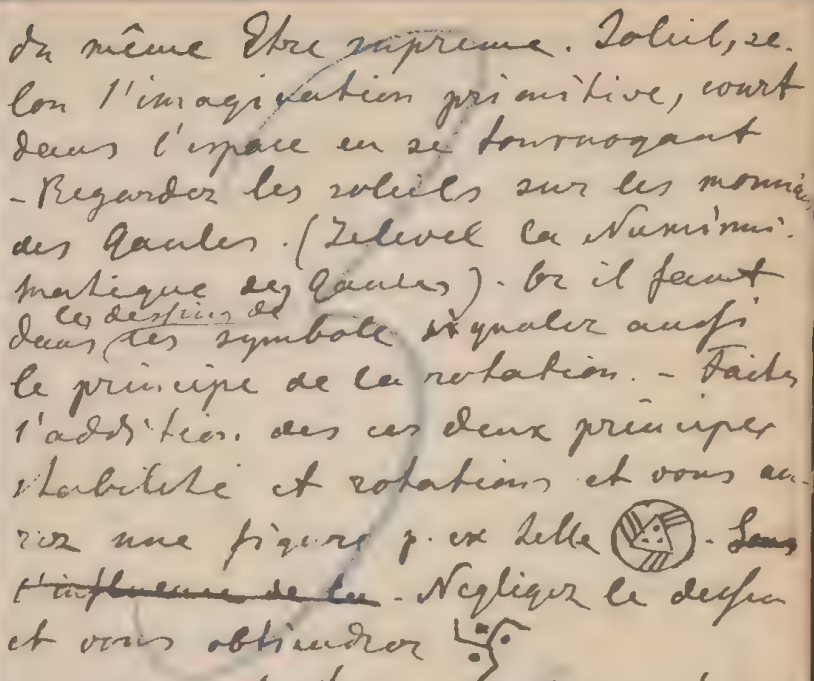 du même Etre supreme. Soleil, se-
lon l'imagination primitive, court
dans l'espace en se tournogant
- Regardez les soleils sur les monnai
des Gaules. (Lelevel La Numismi-
matique des Gaules). Or il faut
les dessins de
dans les symbole signaler aussi
le principe de la rotation. - Faites
l'addition des ces deux principes
stabilité et rotations et vous au-
rez une figure p. ex telle - Sous
l'influence de la - Negligez le dessin
et vous obtiendrez